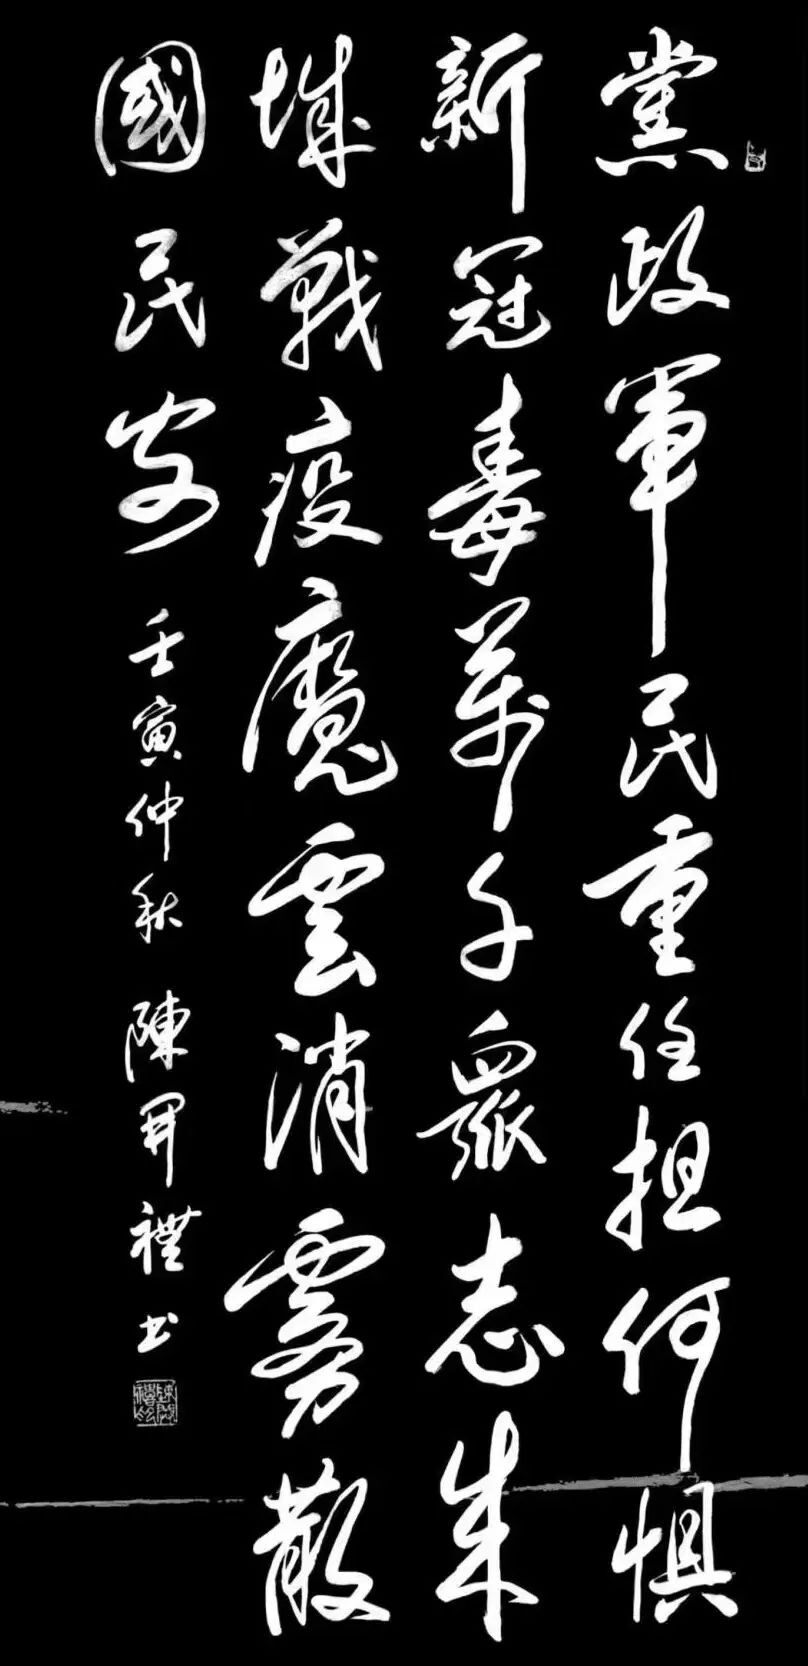 黨政軍民重任担何懼
新冠毒萬千衆志成
城戰疫魔雲消霧散
國民安 壬寅仲秋 陳開禮书